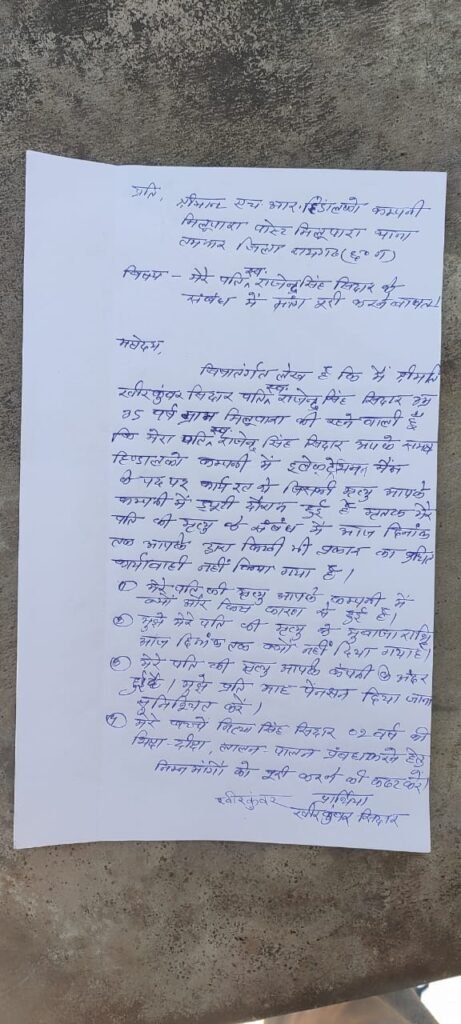 प्रति,
श्रीमान एच.आर. हिंडालको कम्पनी
मिलूपारा पोस्ट मिलूपारा थाना
तमनार जिला रायगढ (छ०ग)
विषय - मेरे पति स्व. राजेन्द्र सिंह सिदार के
संबंध में मांग पूरी करने बाबत।
महोदय,
विषयांतर्गत लेख है कि मैं श्रीमति
खीरकुंवर सिदार पति स्व. राजेन्द्र सिंह सिदार उम्र
35 वर्ष ग्राम मिलूपारा की रहने वाली हूँ
कि मेरा पति स्व. राजेन्द्र सिंह सिदार आपके
हिण्डालको कम्पनी में
के पद पर कार्यरत थे जिसकी मृत्यु आपके
कम्पनी में ड्यूटी दौरान हुई है मृतक मेरे
पति की मृत्यु के संबंध में आज दिनांक
तक आपके द्वारा किसी भी प्रकार का
कार्यवाही नहीं किया गया है।
① मेरे पति की मृत्यु आपके कम्पनी में
क्यों और किस कारण से हुई है।
② मुझे मेरे पति की मृत्यु के मुवाजा राशि
आज दिनांक तक क्यों नहीं दिया गया है।
③ मेरे पति की मृत्यु आपके कंपनी के अंदर
हुई है। मुझे प्रति माह पेनशन दिया जाना
सुनिश्चित करें।
④ मेरे बच्चे सिंह सिदार 02 वर्ष की
शिक्षा-दीक्षा, लालन पालन प्रबंध करने हेतु
निम्न मांगों को पूरी करने की कष्ट करें।
खीरकुंवर प्रार्थिया
खीरकुंवर सिदार